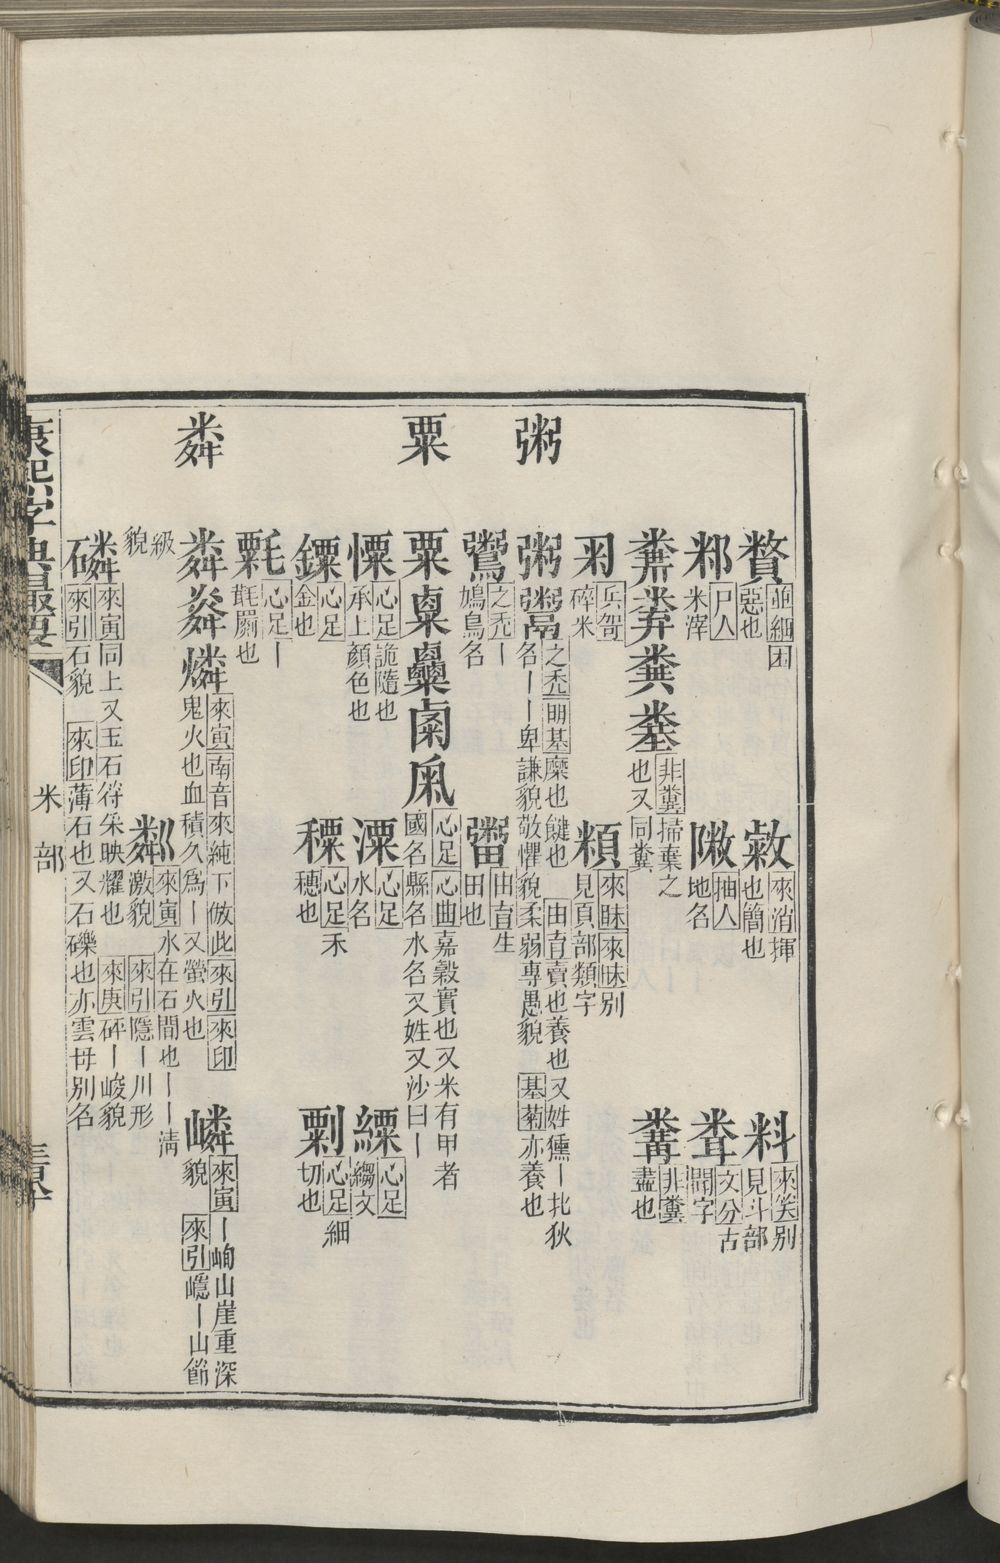 並細囷惡也
來消揮也簡也
料 來笑別見斗部
尸人米滓
抽人地名
文分古聞字
糞 非糞掃棄之也又同糞
非糞盡也
兵哿碎米
來昧來昧別見頁部類字
粥
粥鬻 之禿明基糜也饘也 由育賣也養也又姓獯丨北狄名丨丨卑謙貌敬懼貌柔弱專愚貌 基菊亦養也
之禿丨鳩鳥名
由育生田也
粟
粟 心足心曲嘉穀實也又米有甲者國名縣名水名又姓又沙曰丨
慄 心足詭隨也承上顏色也
溧 心足水名
心足縐文
心足金也
心足禾穗也
心足細切也
心足丨毾𦋺也
粦
粦 燐 來寅南音來純下倣此來引來印鬼火也血積久爲丨又螢火也
嶙 來寅丨峋山崖重深貌 來引嶾丨山節級貌
粼 來寅水在石間也丨丨淸激貌 來引隱丨川形
來寅同上又玉石符采映耀也 來庚砰丨峻貌
來引石貌 來印薄石也又石礫也亦雲母別名
康熙字典最要
米部